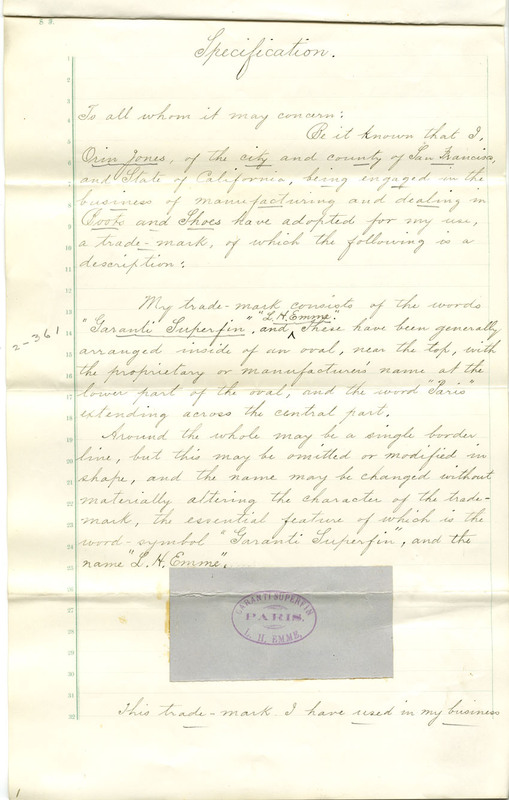 Specification.
To all whom it may concern:
Be it known that I,
Orin Jones, of the city and county of San Francisco,
and State of California, being engaged in the
business of manufacturing and dealing in
Boots and Shoes have adopted for my use,
a trade-mark, of which the following is a
description:
My trade-mark consists of the words
"L.H. Emme"
"Garanti Superfin", and These have been generally
2-361
arranged inside of an oval, near the top, with
the proprietary or manufacturers name at the
lower part of the oval, and the word "Paris"
extending across the central part.
Around the whole may be a single border
line, but this may be omitted or modified in
shape, and the name may be changed without
materially altering the character of the trade-
mark, the essential feature of which is the
word-symbol "Garanti Superfin", and the
name "L. H. Emme".
GARANTI SUPERFIN
PARIS.
L. H. EMME.
This trade-mark I have used in my business
1
1
2
3
4
5
6
7
8
9
10
11
12
13
14
15
16
17
18
19
20
21
22
23
24
25
26
27
28
29
30
31
32